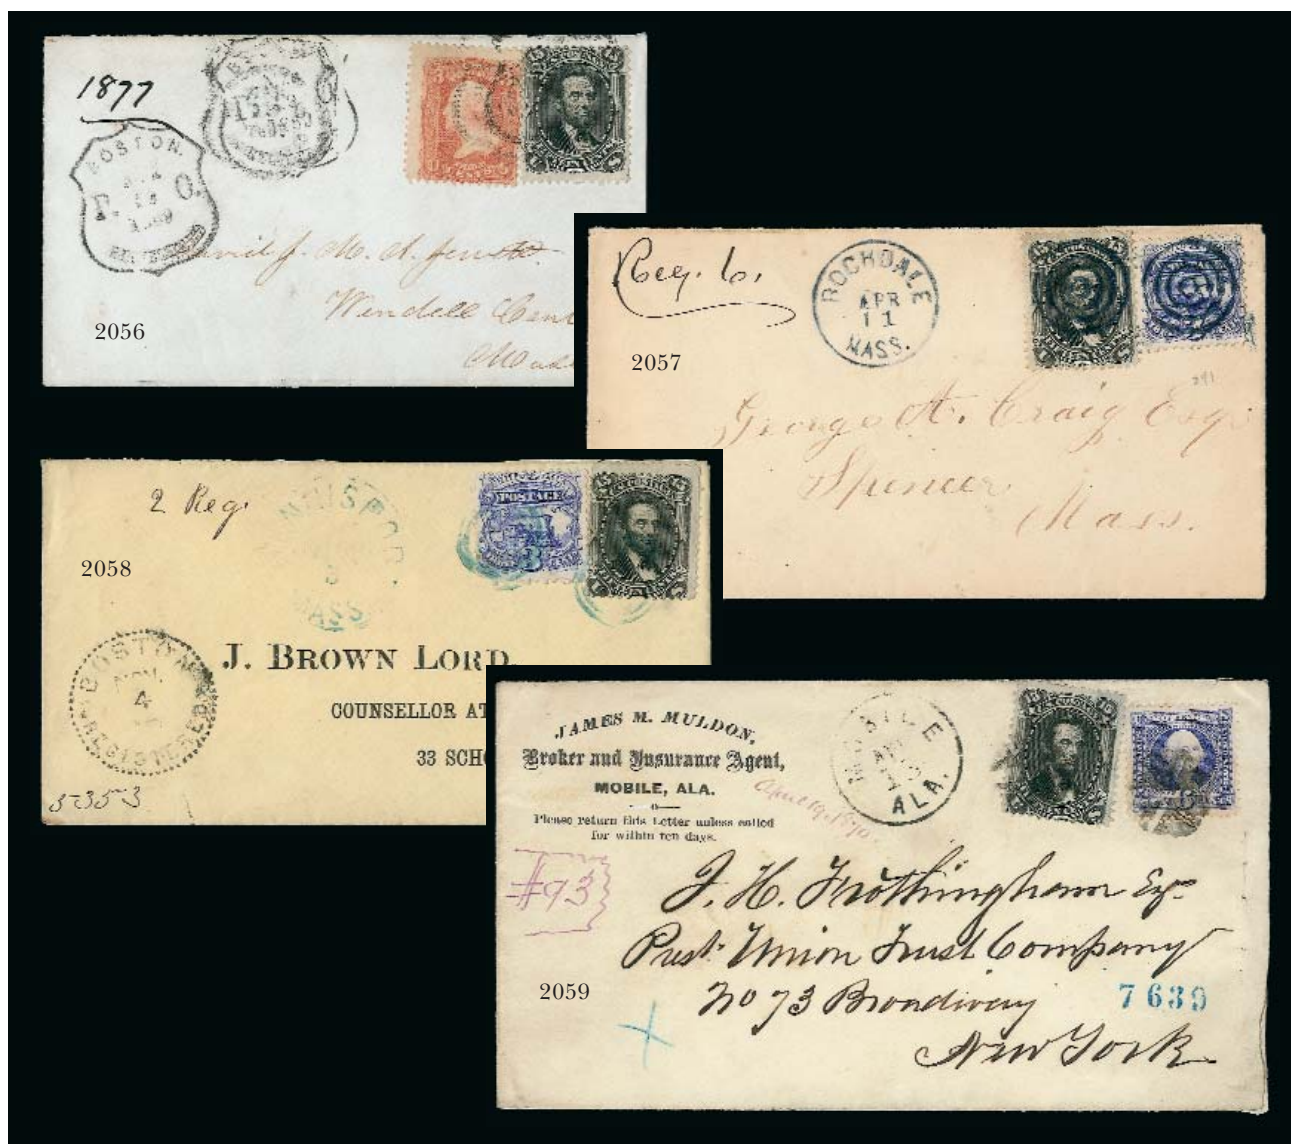 1877
BOSTON.
P. O.
Wendell Cen
Mass
2056
Reg. 6.
ROCHDALE
APR
11
MASS.
2057
291
George A. Craig Esq.
Spencer
Mass.
2 Reg.
POSTAGE
3
MASS
2058
BOSTON
NOV.
4
REGISTERED
J. BROWN LORD,
COUNSELLOR AT
33 SCHO
5353
JAMES M. MULDON,
Broker and Insurance Agent,
MOBILE, ALA.
Please return this Letter unless called
for within ten days.
April 19, 1870.
MOBILE
ALA.
#93
J. H. Frothingham Esq.
Prest. Union Trust Company
No 73 Broadway
7639
New York
2059